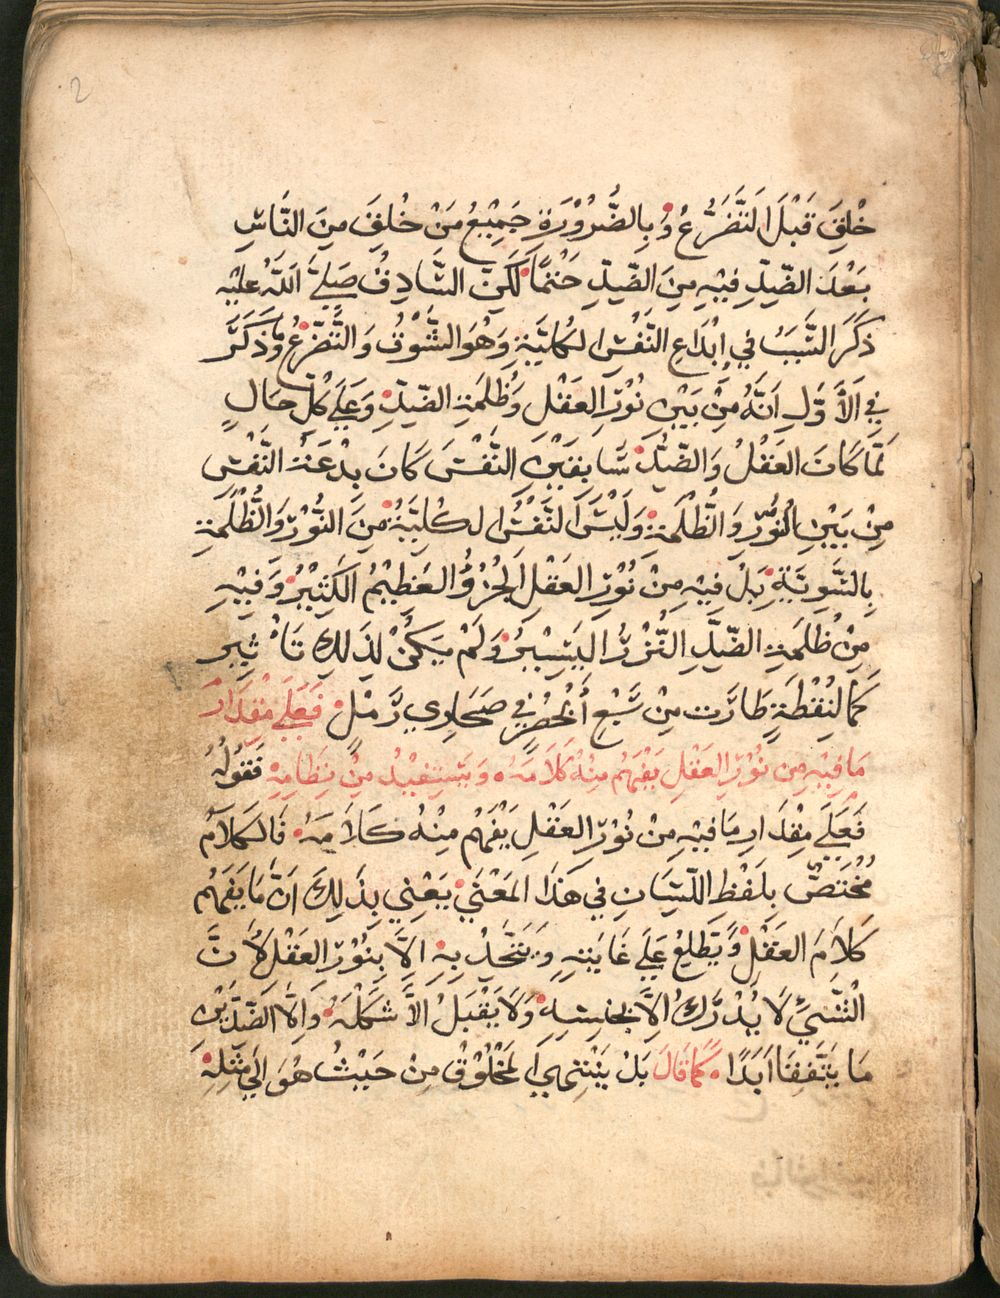 2
خُلِقَ قَبْلَ التَّضَرُّعِ وُبِالضَّرُوْرَةِ جَمِيْعُ مَنْ خُلِقَ مِنَ النَّاسِ
بَعْدَ الضِّدِّ فِيْهِ مِنَ الضِّدِّ حَتْمًا لَكِنَّ السَّادِقُ صَلَّى اللهُ عليْه
ذَكَرَ السَّبَبُ في إِبْدَاعِ النَّفْسِ الكُلِّيَّةِ وَهْوَ الشَّوْقُ وَالتَّضَرُّعُ وَذَكَرَ
فِي الأَوَّلِ اَنَّهُ مِنْ بَيْنِ نُوْرِ العَقْلِ وَظُلْمَةِ الضِّدِّ وَعَلَى كُلِّ حَالٍ
لَمَّا كَانَ العَقْلُ وَالضِّدُّ سَابِقَيْنِ النَّفْسَ كَانَ بِدْعَةُ النَّفْسِ
مِنْ بَيْنِ النُّوْرِ وَالظُّلْمَةِ وَلَيْسَ النَّفْسُ الكُلِّيَّةُ مِنَ النُّوْرِ وَالظُّلْمَةِ
بِالسَّوِيَّةِ بَلْ فِيْهِ مِنْ نُوْرِ العَقْلِ الجُزْؤُ العَظِيْمُ الكَثِيْرُ وَفِيْهِ
مِنْ ظُلْمَةِ الضِّدِّ النُّزْرُ اليَسِيْرُ وَلَمْ يَكُنْ لِذَلِكَ تَأْثِيْرٌ
كَمَا لِنُقْطَةٍ طَارَتْ مِنْ سَبْعِ أَبْحُرٍ فِي صَحَارِي رَمْلٍ فَعَلَى مِقْدَارِ
مَا فِيْهِ مِنْ نُوْرِ العَقْلِ يَفْهَمُ مِنْهُ كَلَامَهُ وَيَسْتَفِيْدُ مِنْ نِظَامِهِ فَقَوْلُهُ
فَعَلَى مِقْدَارِ مَا فِيْهِ مِنْ نُوْرِ العَقْلِ يَفْهَمُ مِنْهُ كَلَامَهُ فَالكَلَامُ
مُخْتَصٌّ بِلَفْظِ اللِّسَانِ فِي هَذَا المَعْنَى يَعْنِي بِذَلِكَ اَنَّ مَا يَفْهَمُ
كَلَامَ العَقْلِ وَيَطَّلِعُ عَلَى غَايَتِهِ وَيَتَّحِدُ بِهِ اِلَّا بِنُوْرِ العَقْلِ لِأَنَّ
الشَّيَّ لَا يُدْرِكُ اِلَّا بِجِنْسِهِ وَلَا يَقْبَلُ اِلَّا شَكْلَهُ وَاِلَّا الضِّدَّيْنِ
مَا يَتَّفِقَا اَبَدًا كَمَا قَالَ بَلْ يَنْتَهِي المَخْلُوْقُ مِنْ حَيْثُ هُوَ اِلَى مَثَلِهِ